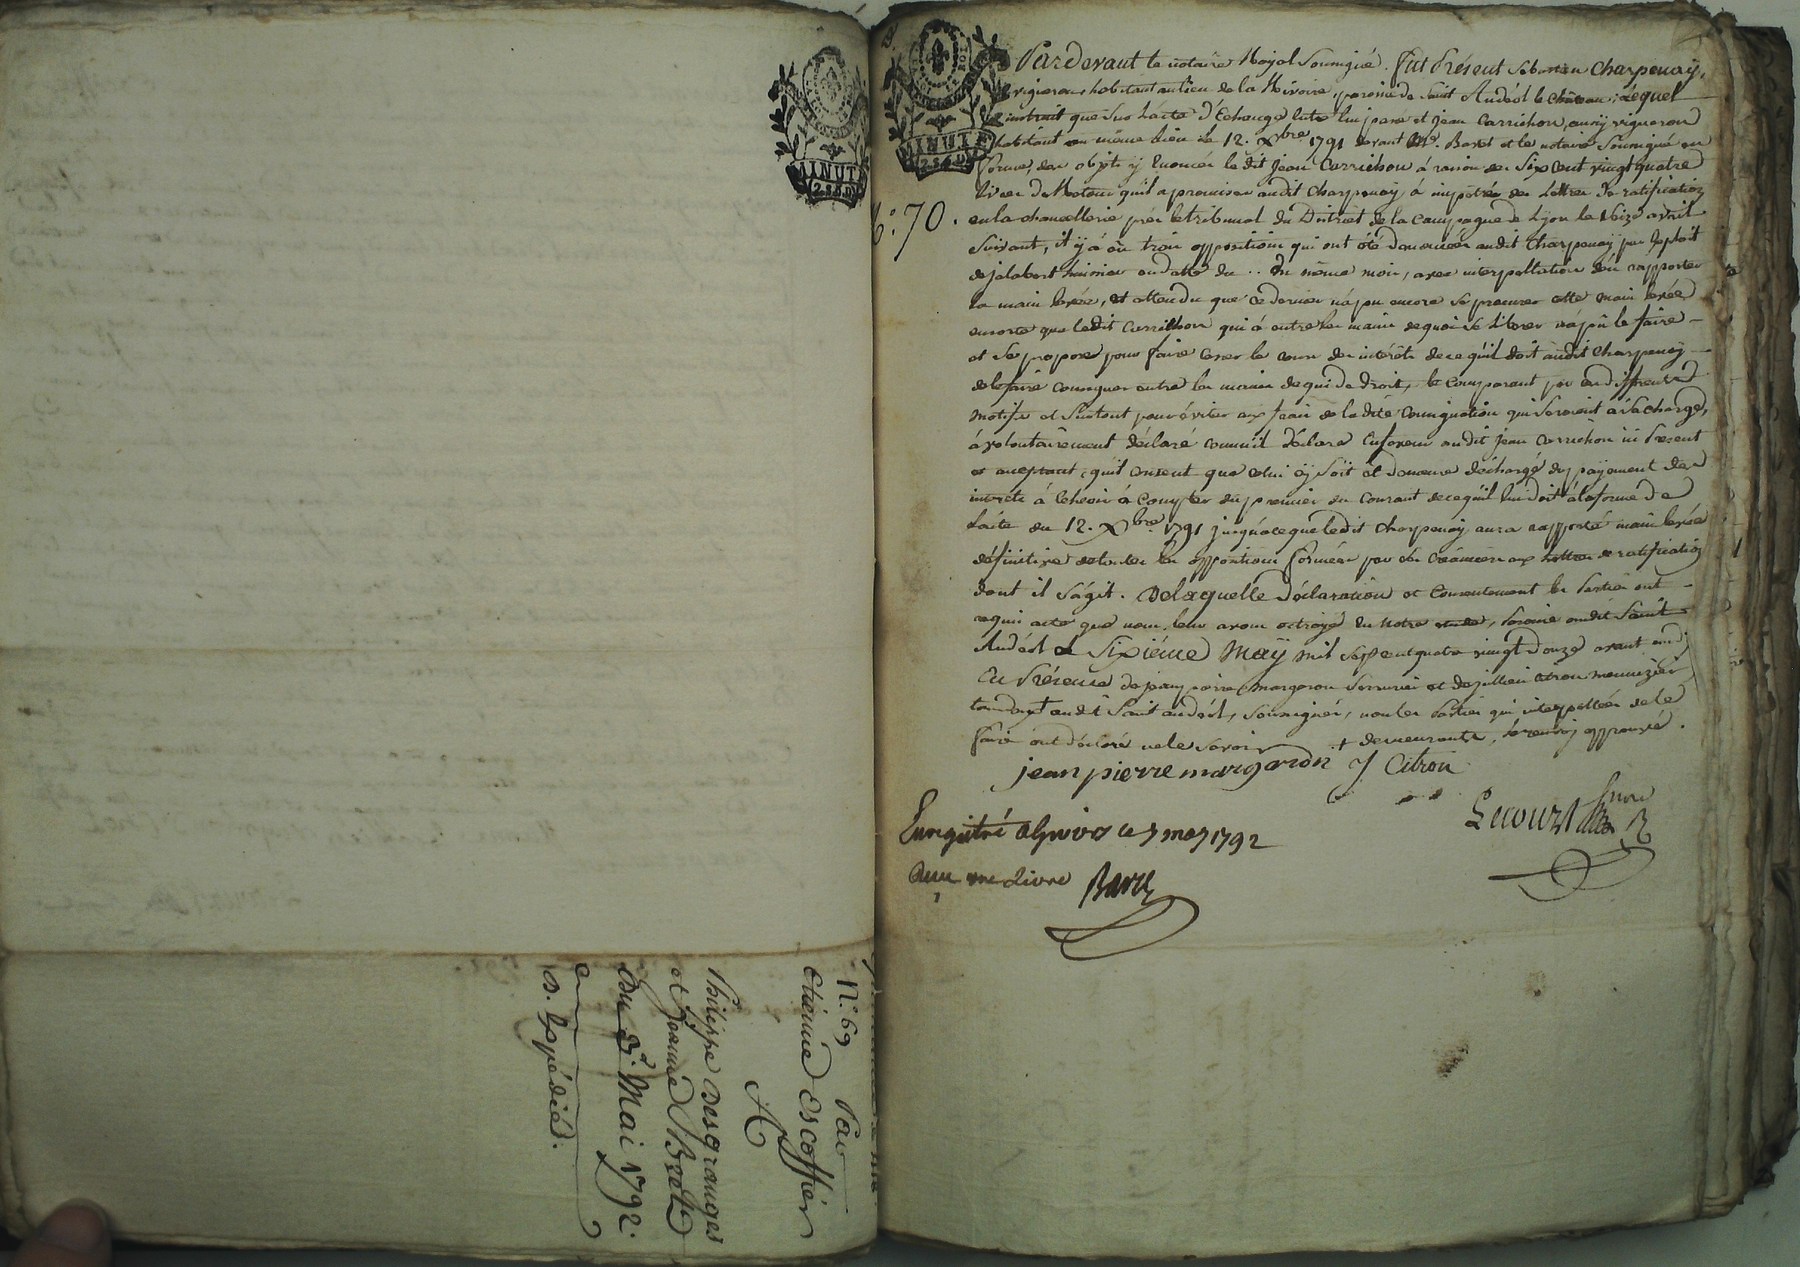 MINUTE
2.S.6.D
N.° 69 Par
Etienne Escoffier
A
Philippe Desgranges
et Jeanne
Du Mai 1792.
Expédié.
MINUTE
2.S.6.D
N.° 70.
Pardevant le notaire Royal Soussigné. fut Présent Sébastien Charpenaÿ,
vigneron habitant au lieu de la Rivoire, paroisse de Saint Andéol le Château; Lequel
instruit que sur L'acte d'Echange Entre lui passé et Jean Carrichon, aussy vigneron
habitant au même lieu le 12. Xbre 1791 devant Me. Boret et le notaire Soussigné en
forme, des objets y Enoncés le dit Jean Carrichon à raison des Six Cent vingt quatre
livres de Retour qu'il a promises audit Charpenay, à impétré des Lettres de ratification
en la chancellerie près le tribunal du District de la Campagne de Lyon le avril
Suivant, il ÿ à eu trois oppositions qui ont été dénoncées audit Charpenaÿ par Exploit
de jalabert huissier en datte du .. du même mois, avec interpellation d'en rapporter
la main levée, et attendu que ce dernier n'a pu encore se procurer cette main levée
ensorte que ledit Carrichon qui à entre les mains de quoi se liberer n'à pû le faire
et Se propose pour faire cesser le cours des intérêts de ce qu'il doit audit Charpenay
de le faire consigner entre les mains de qui de droit, le Comparant par ces différents
motifs et Surtout pour éviter aux frais de la dite Consignation qui seroient à sa charge,
à volontairement déclaré comm'il déclare En faveur audit Jean Carrichon ici Present
et acceptant, qu'il consent que celui cÿ Soit et demeure déchargé du payement des
interets à Echeoir à Compter du premier du Courant de ce qu'il lui doit à la forme de
L'acte du 12. Xbre 1791 jusqu'à ce que ledit Charpenaÿ aura rapporté main levée
définitive de toutes les oppositions formées par ses Créanciers aux Lettres de ratification
dont il S'agit. De laquelle déclaration et Consentement les Parties ont
requis acte que nous leur avons octroyé En Notre étude, Paroisse audit Saint
Andéol le Sixième Maÿ mil Sept cent quatre vingt douze avant midi
En Présence de jean pierre Margaron Serrurier et de jullien Citron menuizier
tous deux + audit Saint andéol, Soussignés, non les Parties qui interpellées de le
faire ont déclaré ne le Savoir + demeurants, le renvoi approuvé.
jean pierre margaron J Citron
Lecourt
Enregistré a Givors le 7 may 1792
Reçu une livre